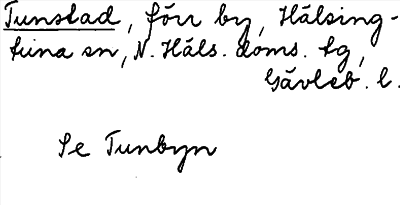 Tunstad, förr by, Hälsing-
tuna sn, N. Häls. doms. tg,
Gävleb. l.
Se Tunbyn